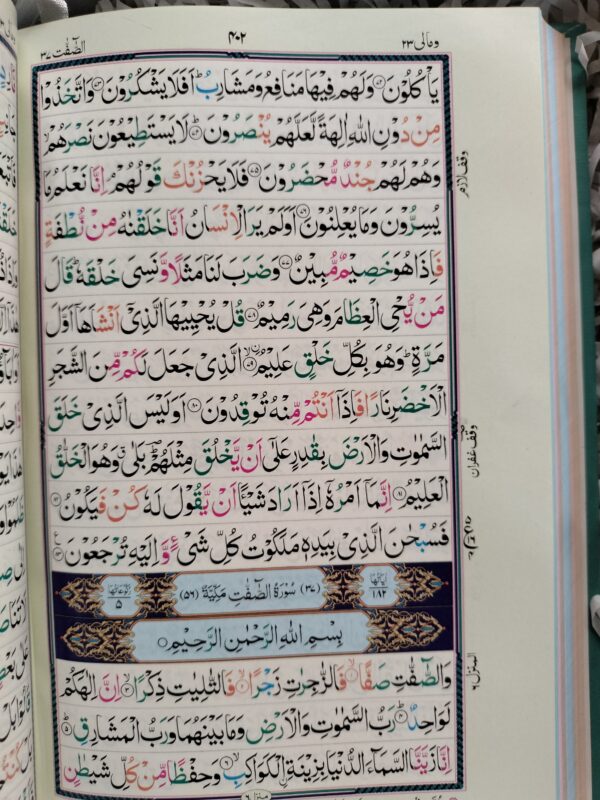 ومالی ٢٣
٤٠٢
الصّٰفّٰت ٣٧
يَاۡكُلُوۡنَ ﴿۷۲﴾ وَلَهُمۡ فِيۡهَا مَنَافِعُ وَمَشَارِبُ ؕ اَفَلَا يَشۡكُرُوۡنَ ﴿۷۳﴾ وَاتَّخَذُوۡا
مِنۡ دُوۡنِ اللّٰهِ اٰلِهَةً لَّعَلَّهُمۡ يُنۡصَرُوۡنَ ﴿۷۴﴾ لَا يَسۡتَطِيۡعُوۡنَ نَصۡرَهُمۡ
وَهُمۡ لَهُمۡ جُنۡدٌ مُّحۡضَرُوۡنَ ﴿۷۵﴾ فَلَا يَحۡزُنۡكَ قَوۡلُهُمۡ ۘ اِنَّا نَعۡلَمُ مَا
يُسِرُّوۡنَ وَمَا يُعۡلِنُوۡنَ ﴿۷۶﴾ اَوَلَمۡ يَرَ الۡاِنۡسَانُ اَنَّا خَلَقۡنٰهُ مِنۡ نُّطۡفَةٍ
فَاِذَا هُوَ خَصِيۡمٌ مُّبِيۡنٌ ﴿۷۷﴾ وَضَرَبَ لَنَا مَثَلًا وَّنَسِىَ خَلۡقَهٗ ؕ قَالَ
مَنۡ يُّحۡىِ الۡعِظَامَ وَهِىَ رَمِيۡمٌ ﴿۷۸﴾ قُلۡ يُحۡيِيۡهَا الَّذِىۡۤ اَنۡشَاَهَاۤ اَوَّلَ
مَرَّةٍ ؕ وَهُوَ بِكُلِّ خَلۡقٍ عَلِيۡمُ ۙ﴿۷۹﴾ الَّذِىۡ جَعَلَ لَكُمۡ مِّنَ الشَّجَرِ
الۡاَخۡضَرِ نَارًا فَاِذَاۤ اَنۡتُمۡ مِّنۡهُ تُوۡقِدُوۡنَ ﴿۸۰﴾ اَوَلَيۡسَ الَّذِىۡ خَلَقَ
السَّمٰوٰتِ وَالۡاَرۡضَ بِقٰدِرٍ عَلٰٓى اَنۡ يَّخۡلُقَ مِثۡلَهُمۡ ؔؕ بَلٰى وَهُوَ الۡخَلّٰقُ
الۡعَلِيۡمُ ﴿۸۱﴾ اِنَّمَاۤ اَمۡرُهٗۤ اِذَاۤ اَرَادَ شَيۡئًـا اَنۡ يَّقُوۡلَ لَهٗ كُنۡ فَيَكُوۡنُ ﴿۸۲﴾
فَسُبۡحٰنَ الَّذِىۡ بِيَدِهٖ مَلَكُوۡتُ كُلِّ شَىۡءٍ وَّاِلَيۡهِ تُرۡجَعُوۡنَ ﴿۸۳﴾
اٰيَاتُهَا ١٨٢ (٣٧) سُوۡرَةُ الصّٰٓفّٰتِ مَكِّيَّةٌ (٥٦) رُكُوۡعَاتُهَا ٥
بِسۡمِ اللّٰهِ الرَّحۡمٰنِ الرَّحِيۡمِ
وَالصّٰٓفّٰتِ صَفًّا ۙ﴿۱﴾ فَالزّٰجِرٰتِ زَجۡرًا ۙ﴿۲﴾ فَالتّٰلِيٰتِ ذِكۡرًا ۙ﴿۳﴾ اِنَّ اِلٰهَكُمۡ
لَوَاحِدٌ ؕ﴿۴﴾ رَبُّ السَّمٰوٰتِ وَالۡاَرۡضِ وَمَا بَيۡنَهُمَا وَرَبُّ الۡمَشَارِقِ ؕ﴿۵﴾
اِنَّا زَيَّنَّا السَّمَآءَ الدُّنۡيَا بِزِيۡنَةِ اۨلۡكَوَاكِبِ ۙ﴿۶﴾ وَحِفۡظًا مِّنۡ كُلِّ شَيۡطٰنٍ
وقف لازم
وقف غفران
المنزل ٦
منزل ٦